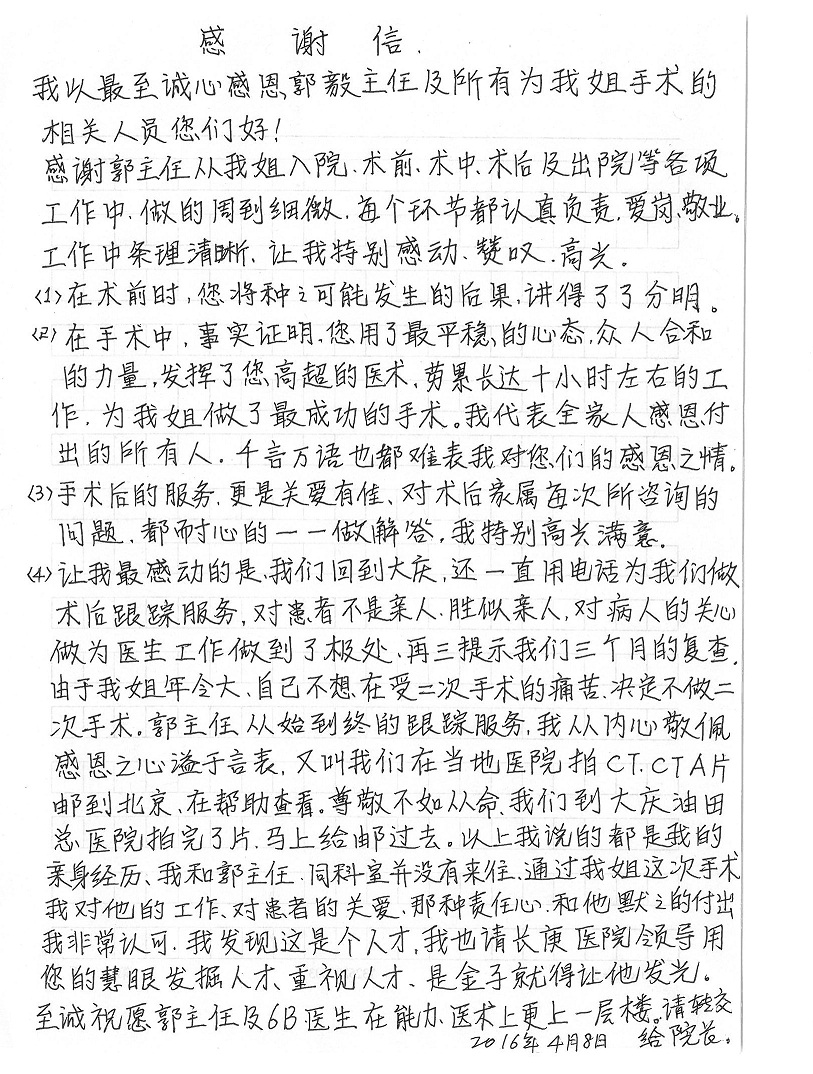 感谢信.
我以最至诚心感恩、郭毅主任及所有为我姐手术的
相关人员您们好!
感谢郭主任从我姐入院、术前、术中、术后及出院等各项
工作中、做的周到细微、每个环节都认真负责,爱岗、敬业。
工作中条理清晰、让我特别感动、赞叹、高兴。
(1)在术前时,您将种之可能发生的后果,讲得了了分明。
(2)在手术中,事实证明、您用了最平稳、的心态,众人合和
的力量,发挥了您高超的医术,劳累长达十小时左右的工
作,为我姐做了最成功的手术。我代表全家人感恩付
出的所有人。千言万语也都难表我对您们的感恩之情。
(3)手术后的服务、更是关爱有佳、对术后家属每次所咨询的
问题、都耐心的一一做解答,我特别高兴满意。
(4)让我最感动的是、我们回到大庆,还一直用电话为我们做
术后跟踪服务,对患者不是亲人、胜似亲人,对病人的关心
做为医生工作做到了极处、再三提示我们三个月的复查,
由于我姐年令大、自己不想在受二次手术的痛苦、决定不做二
次手术。郭主任从始到终的跟踪服务,我从内心敬佩
感恩之心溢于言表,又叫我们在当地医院拍CT.CTA片
邮到北京、在帮助查看。尊敬不如从命、我们到大庆油田
总医院拍完了片、马上给邮过去。以上我说的都是我的
亲身经历、我和郭主任、同科室并没有来往、通过我姐这次手术
我对他的工作、对患者的关爱、那种责任心、和他默之的付出
我非常认可、我发现这是个人才,我也请长庚医院领导用
您的慧眼发掘人才、重视人才、是金子就得让他发光。
至诚祝愿郭主任及6B医生在能力、医术上更上一层楼。请转交
2016年4月8日 给院长。